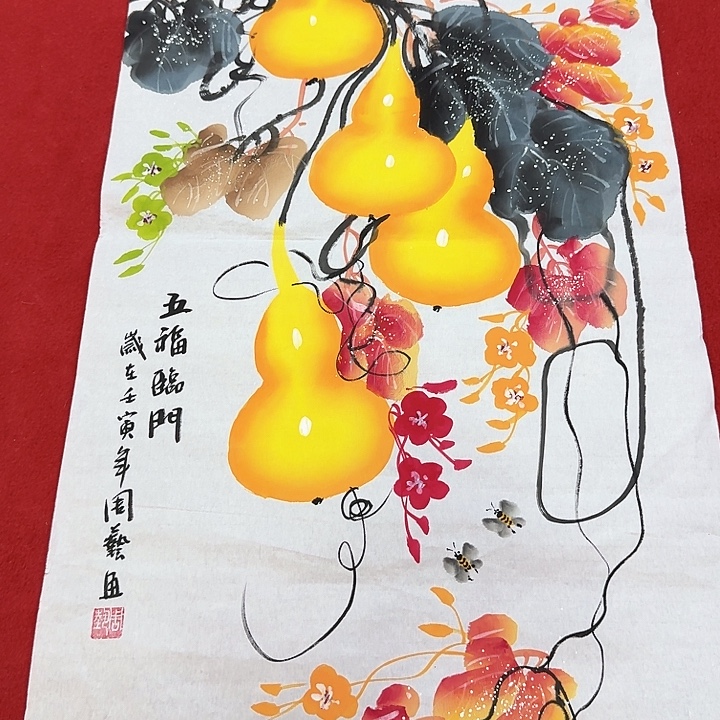 五福臨門
歲在壬寅年周藝画